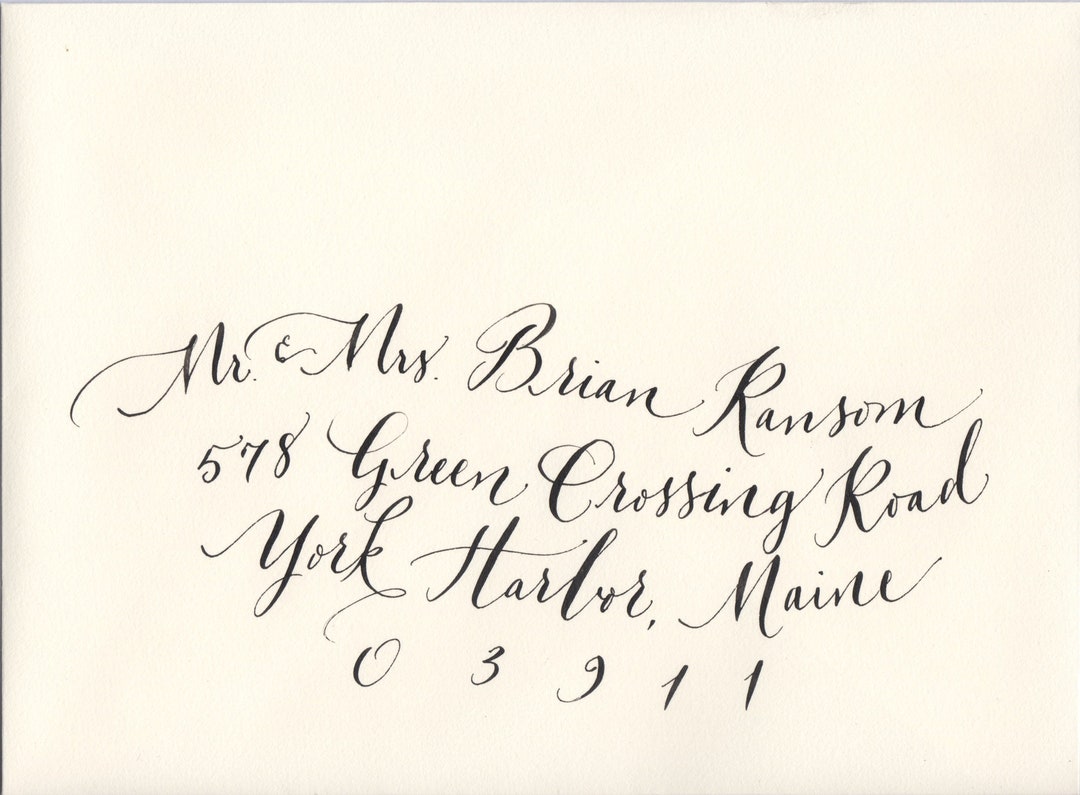 Mr. & Mrs. Brian Ransom
578 Green Crossing Road
York Harbor, Maine
03911